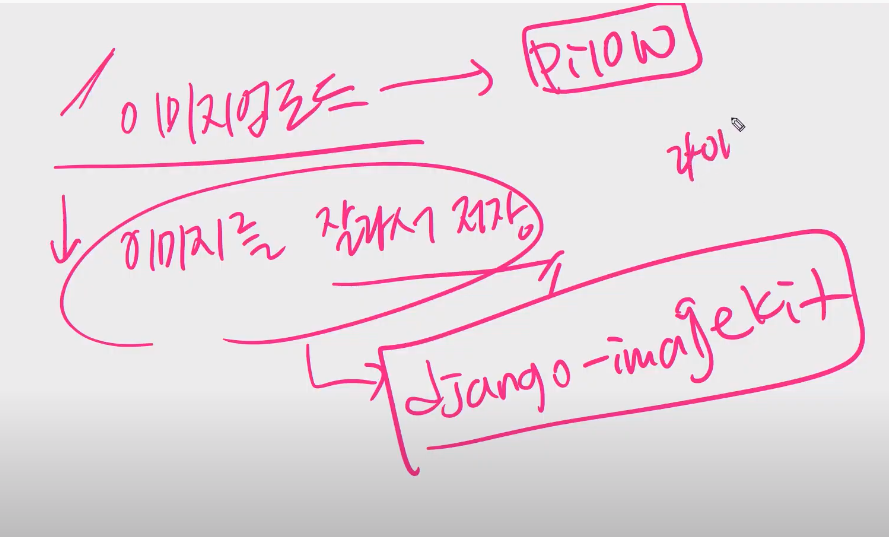 이미지업로드 → Pilow
라이
이미지를 잘라서 저장
django-imagekit